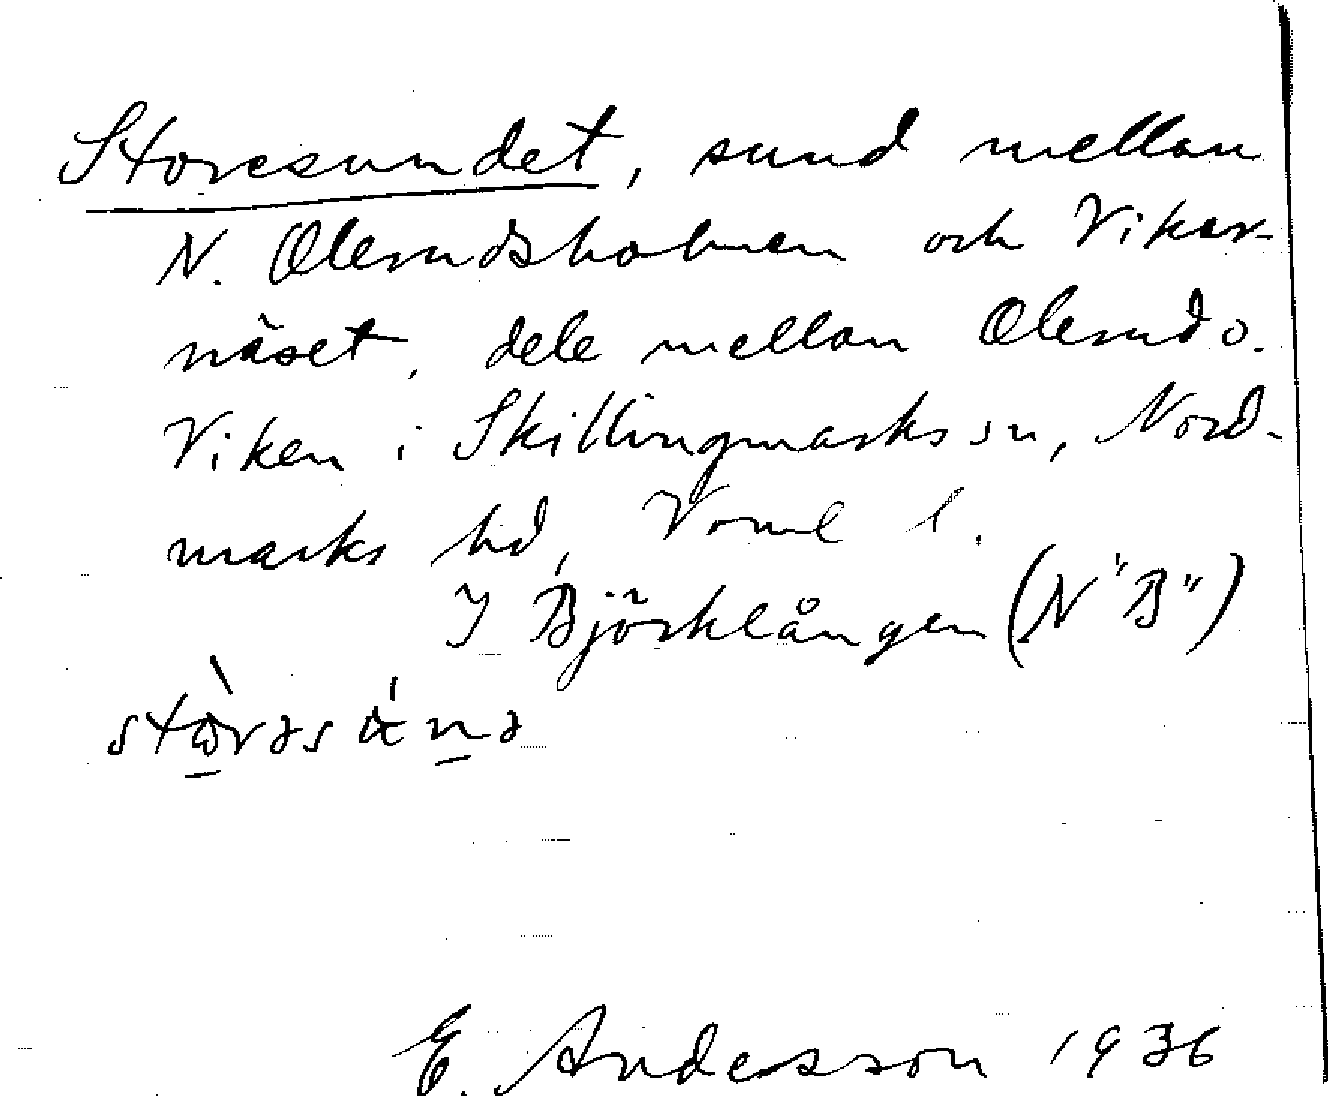 Storesundet, sund mellan
N. Olerudsholmen och Viker-
näset, dels mellan Olerud o.
Viken i Skillingmarks sn, Nord-
marks hd, Värml l.
I Björklången (N "B")
E. Andersson 1936